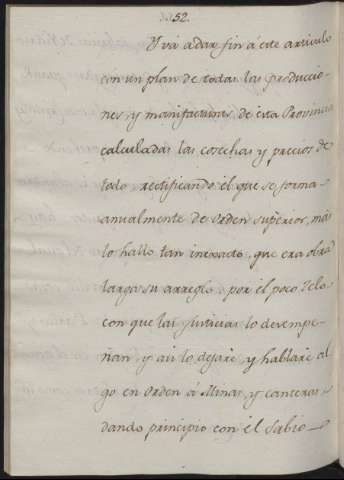 52.
Y vá a dar fin á este articulo
con un plan de todas las produccio-
nes, y manifacturas de esta Provincia
calculadas las cosechas y precios de
todo, rectificando el que se forma
anualmente de orden superior, más
lo hallo tan inexacto, que era obra
larga su arreglo, por el poco zelo
con que las Justicias lo desempe-
ñan, y asi lo dejaré, y hablaré al-
go en orden á Minas, y canteras
dando principio con el Sabio